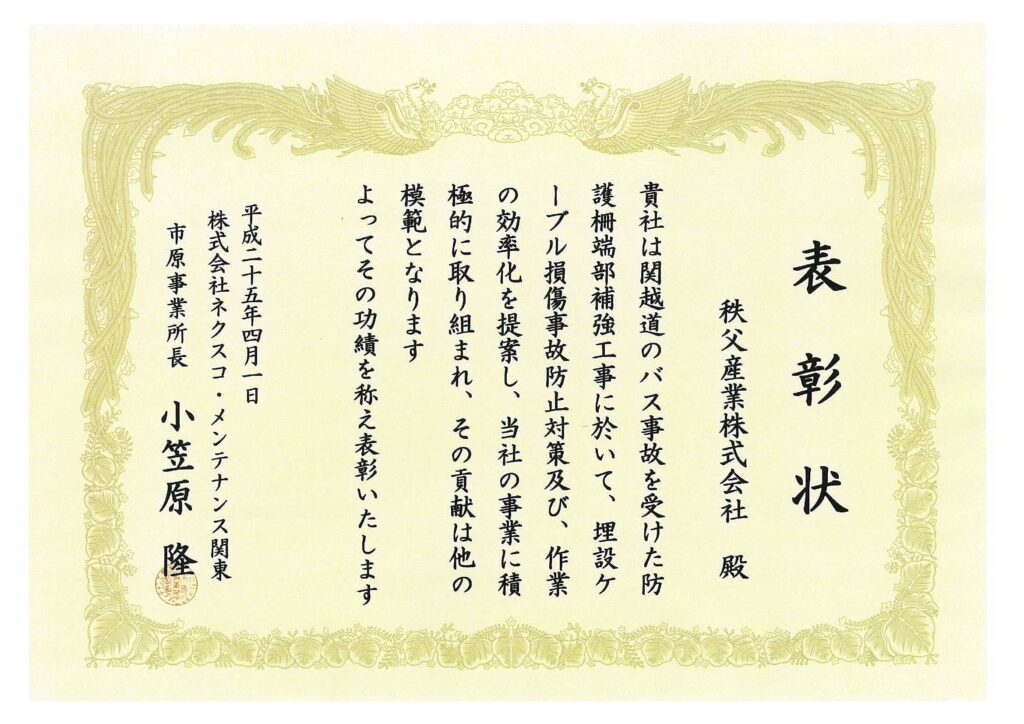 表彰状
秩父産業株式会社 殿
貴社は関越道のバス事故を受けた防
護柵端部補強工事に於いて、埋設ケ
ーブル損傷事故防止対策及び、作業
の効率化を提案し、当社の事業に積
極的に取り組まれ、その貢献は他の
模範となります
よってその功績を称え表彰いたします
平成二十五年四月一日
株式会社ネクスコ・メンテナンス関東
市原事業所長 小笠原 隆